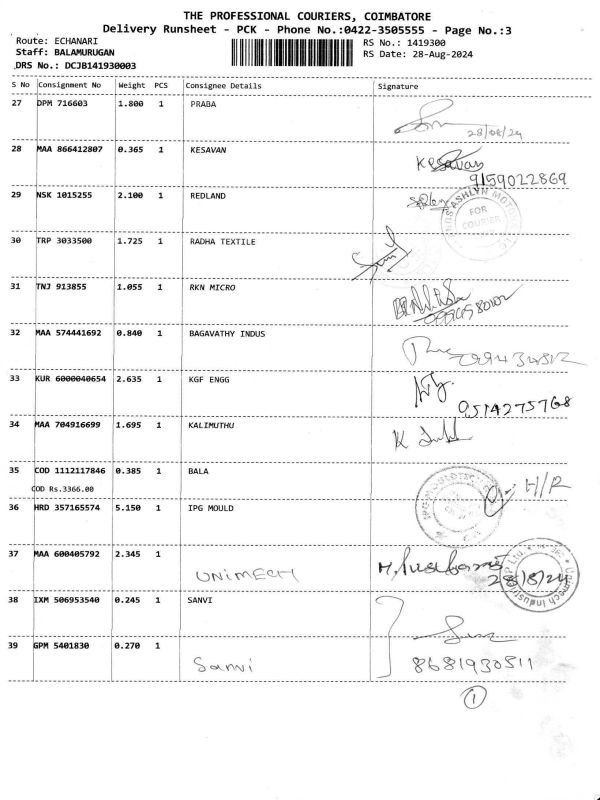 THE PROFESSIONAL COURIERS, COIMBATORE
Delivery Runsheet - PCK - Phone No.:0422-3505555 - Page No.:3
Route: ECHANARI
Staff: BALAMURUGAN
DRS No.: DCJB141930003
RS No.: 1419300
RS Date: 28-Aug-2024
S No Consignment No Weight PCS Consignee Details Signature
27 DPM 716603 1.800 1 PRABA
28/08/24
28 MAA 866412807 0.365 1 KESAVAN
Kesavan
9159022869
29 NSK 1015255 2.100 1 REDLAND
ASHLYN MOTORS
FOR
COURIER
30 TRP 3033500 1.725 1 RADHA TEXTILE
31 TNJ 913855 1.055 1 RKN MICRO
32 MAA 574441692 0.840 1 BAGAVATHY INDUS
33 KUR 6000040654 2.635 1 KGF ENGG
9514275768
34 MAA 704916699 1.695 1 KALIMUTHU
K
35 COD 1112117846 0.385 1 BALA
COD Rs.3366.00
H/R
36 HRD 357165574 5.150 1 IPG MOULD
37 MAA 600405792 2.345 1
UNIMECH
28/8/24
Unimech Industries P Ltd.
38 IXM 506953540 0.245 1 SANVI
39 GPM 5401830 0.270 1
Sanvi
8681930511
1